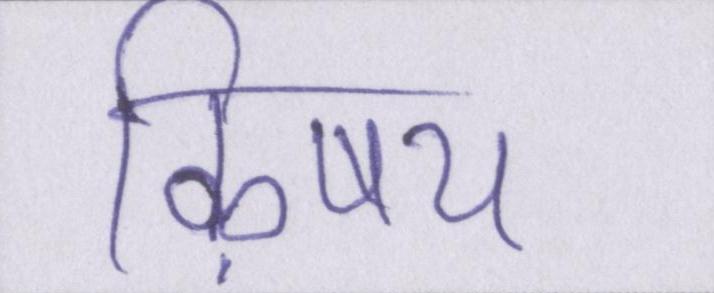 क़िषय